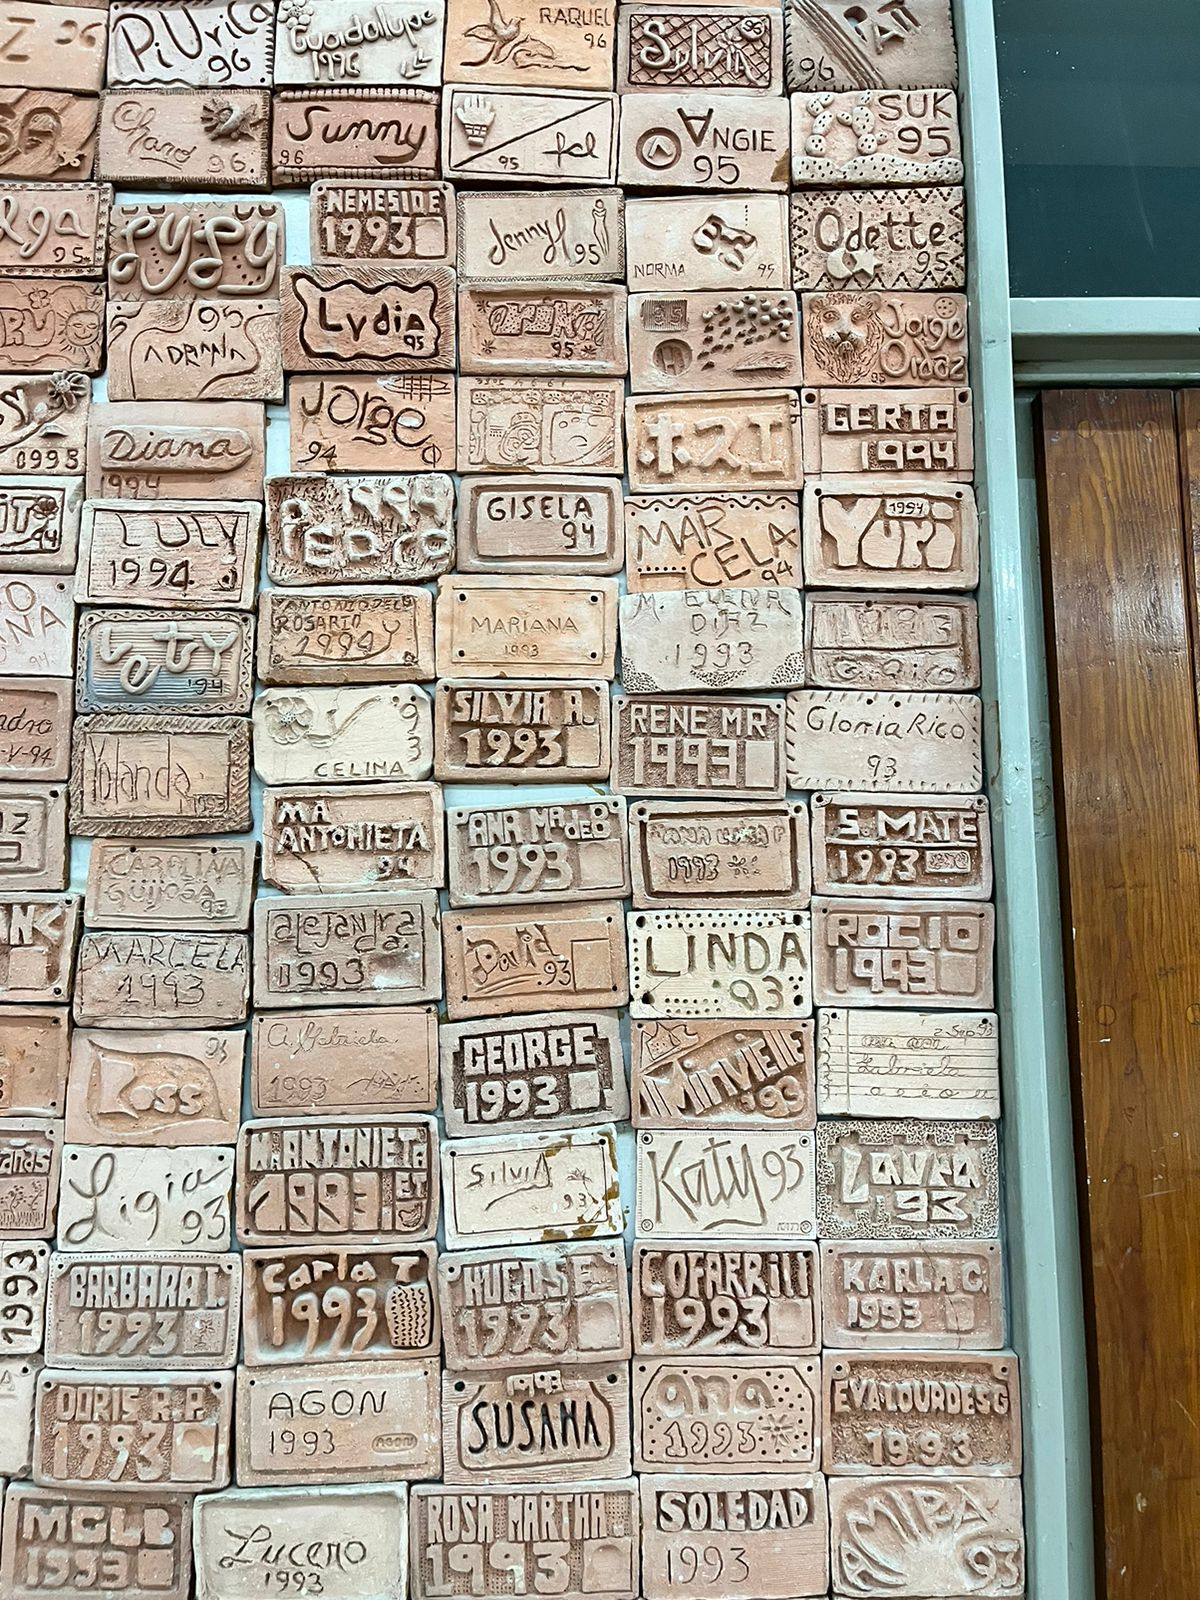 96
PiUrica
96
Guadalupe
1996
RAQUEL
96
Sylvia
96
PATI
96
Chano
96.
Sunny
96
95
ANGIE
95
SUK
95
lga
95
NEMESIDE
1993
Jennyl
95
NORMA
95
Odette
95
95
ADRIANA
Lydia
95
95
95
H
Jorge
Oroaz
95
1995
Diana
1994
Jorge
94
ホスエ
GERTA
1994
94
LULY
1994
1994
PEDRO
GISELA
94
MAR
CELA
94
1994
Yuri
94
Lety
'94
ANTONIO DEL
ROSARIO
1994
MARIANA
1993
M. ELENA
DIAZ
1993
1993
-V-94
Yolanda
1993
93
CELINA
SILVIA A.
1993
RENE MR
1993
Gloria Rico
93
CAROLINA
GUIJOSA
93
MA
ANTONIETA
94
ANA MA de B
1993
ANA LUISA P
1993
S. MATE
1993
MARCELA
1993
alejandra
1993
David
.93
LINDA
'93
ROCIO
1993
Ross
94
a. Gabriela
1993
GEORGE
1993
Minvielle
93
2 Sep 93
Gabriela
a e i o u
Ligia
93
M. ANTONIETA
1993
ET
Silvia
93
Katy 93
LAURA
93
1993
BARBARA I.
1993
Carla T
1993
HUGO S E
1993
COFARRill
1993
KARLA C.
1993
DORIS R.P.
1993
AGON
1993
AGON
1993
SUSANA
ana
1993
EVA LOURDES G
1993
MGLB
1993
Lucero
1993
ROSA MARTHA.
1993
SOLEDAD
1993
AMIRA
93